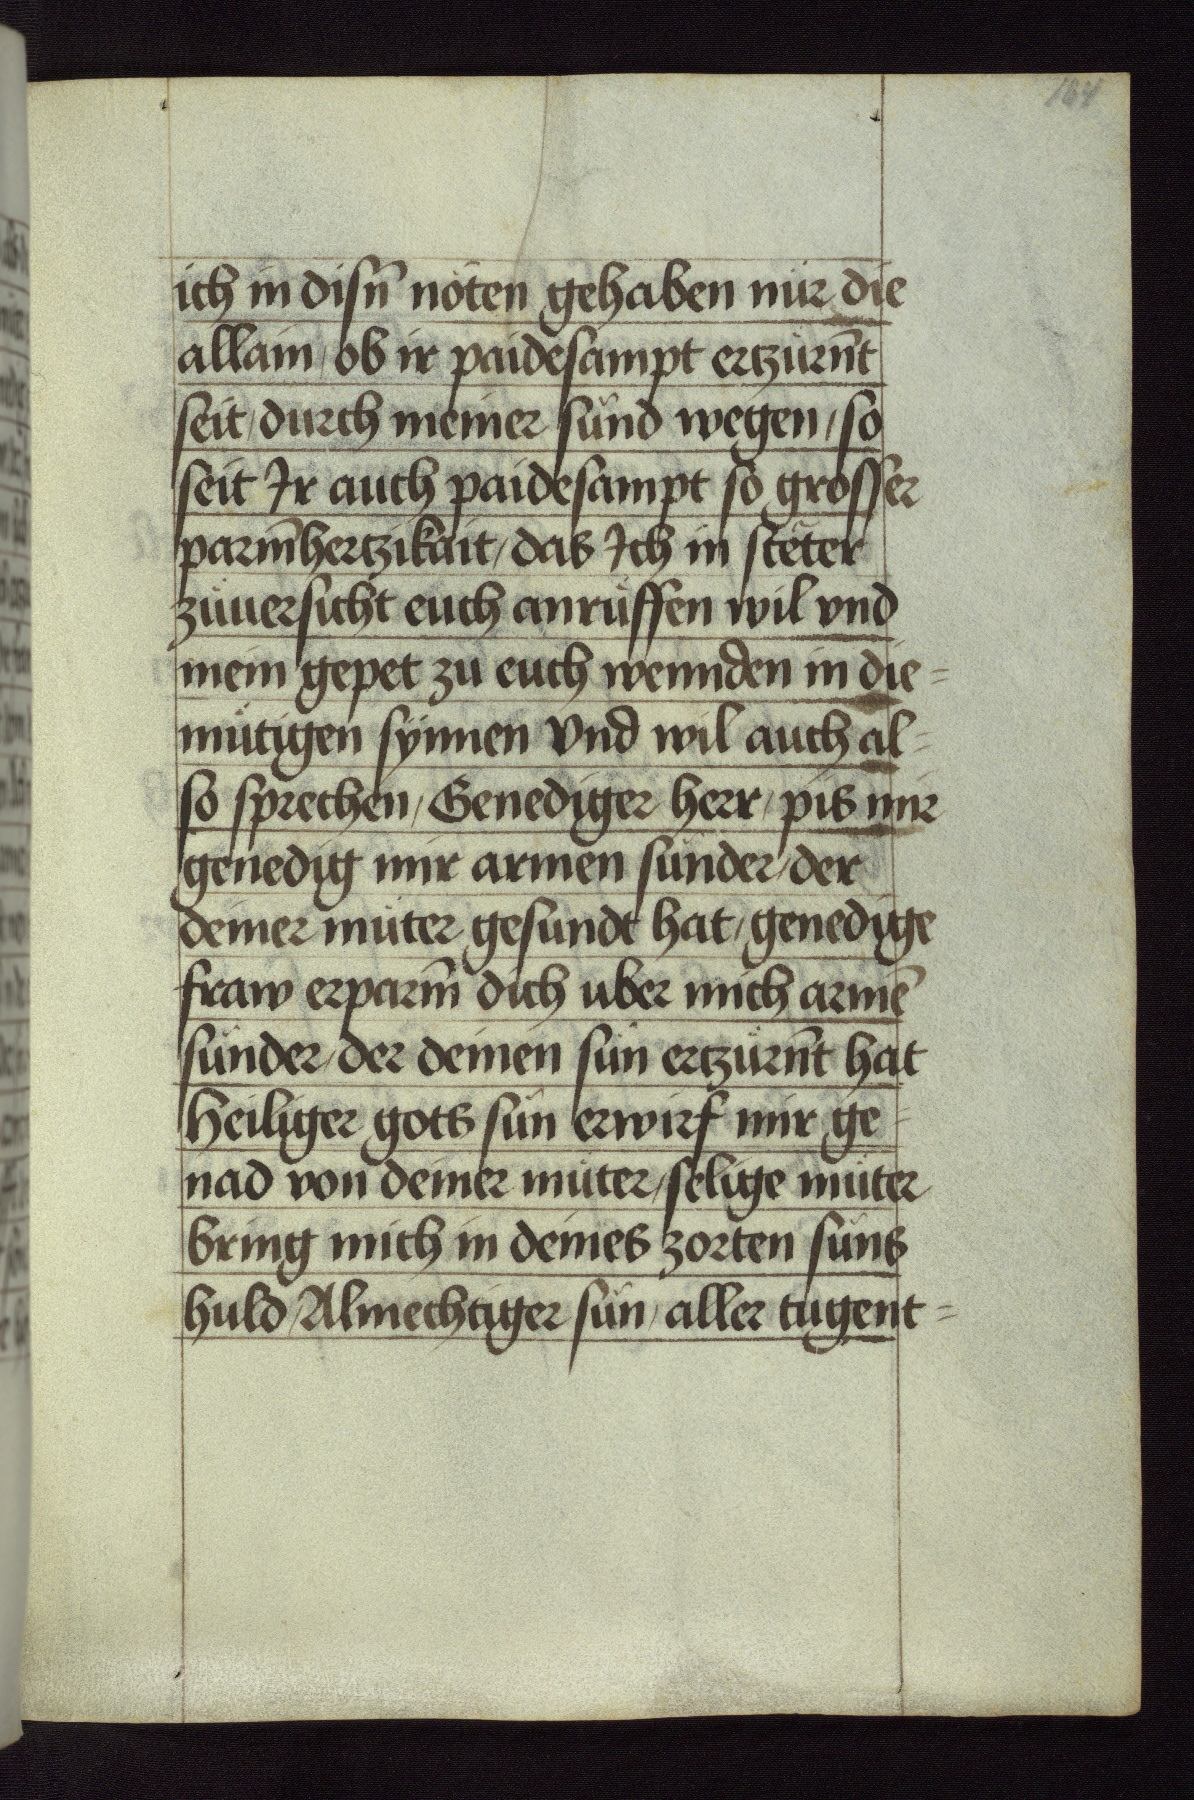 164
ich in disn̄ nöten gehaben nür die
allain / ob ir paidesampt ertzürn̄t
seit / durch meiner sünd wegen / so
seit Ir auch paidesampt so grosser
parm̄hertzikait / das Ich in stëter
züuersicht euch anrüffen wil vnd
mein gepet zu euch wennden in die=
mütigen sÿnnen Vnd wil auch al=
so sprechen / Genediger herr / pis mir
genedig mir armen sünder / der
deiner müter gesundt hat / genedige
fraw erparm̄ dich uber mich armē
sünder / der deinen sün ertzürn̄t hat
Heiliger gots sün erwirf mir ge=
nad von deiner müter / selige müter
bring mich in deines zorten süns
huld / Almechtiger sün / aller tugent=